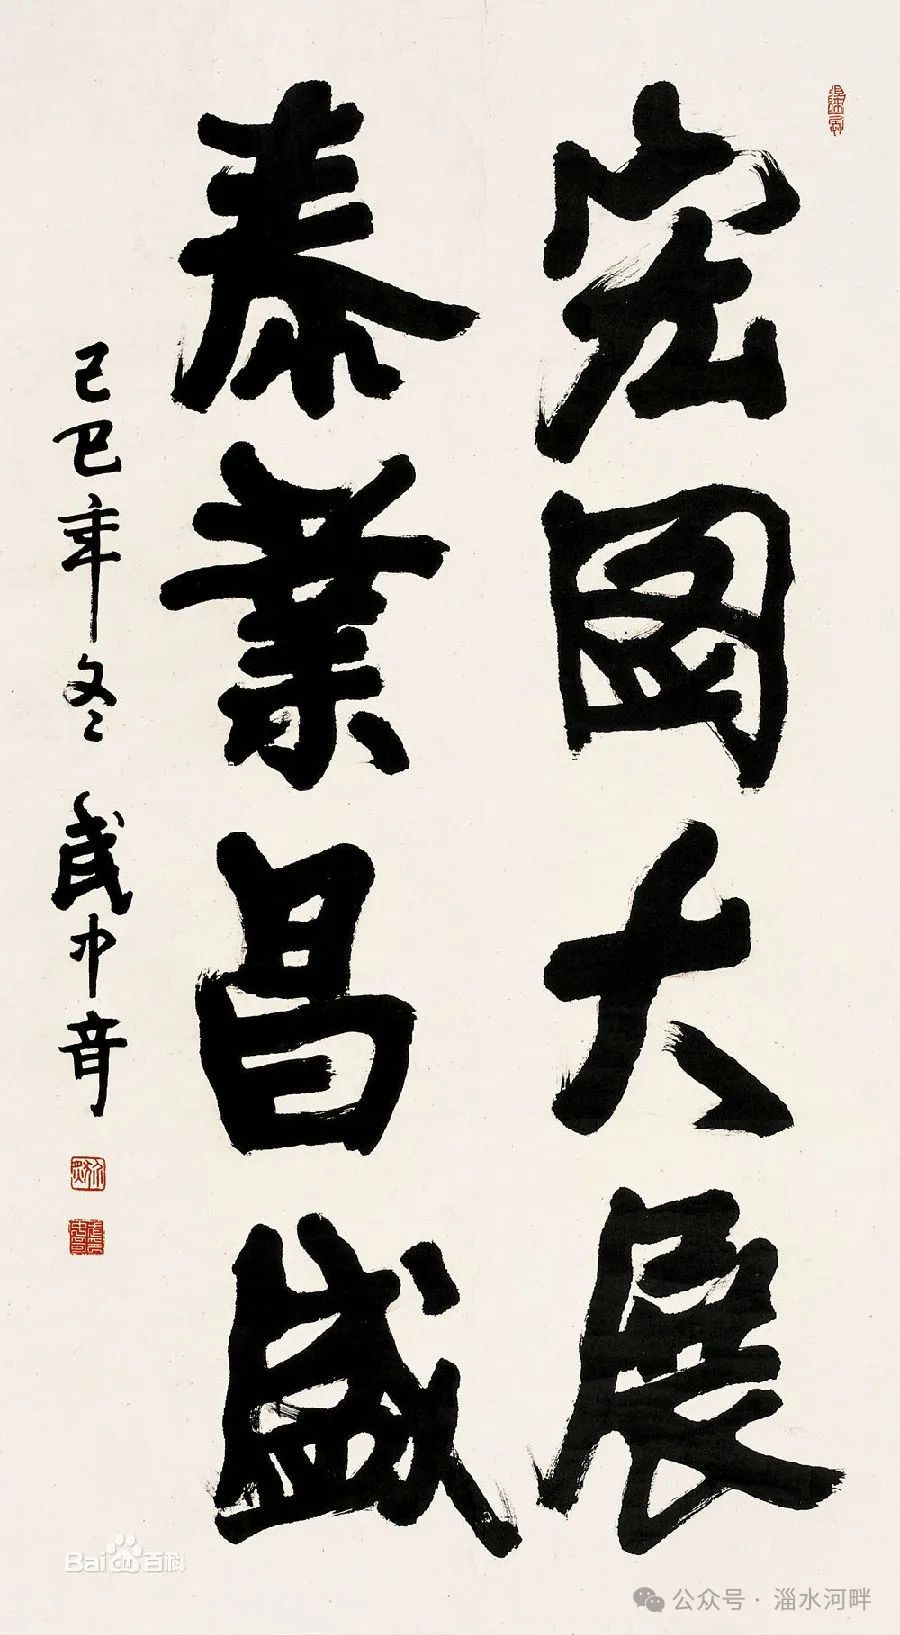 宏图大展
泰業昌盛
己巳年冬 武中奇
Bai百科
公众号 · 淄水河畔